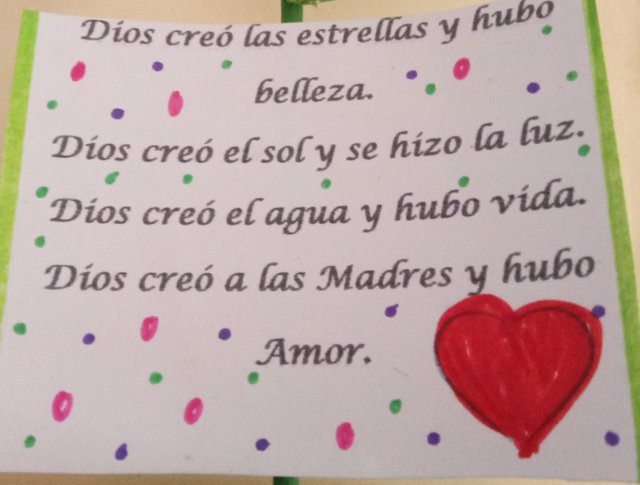 Dios creó las estrellas y hubo
belleza.
Dios creó el sol y se hizo la luz.
Dios creó el agua y hubo vida.
Dios creó a las Madres y hubo
Amor.